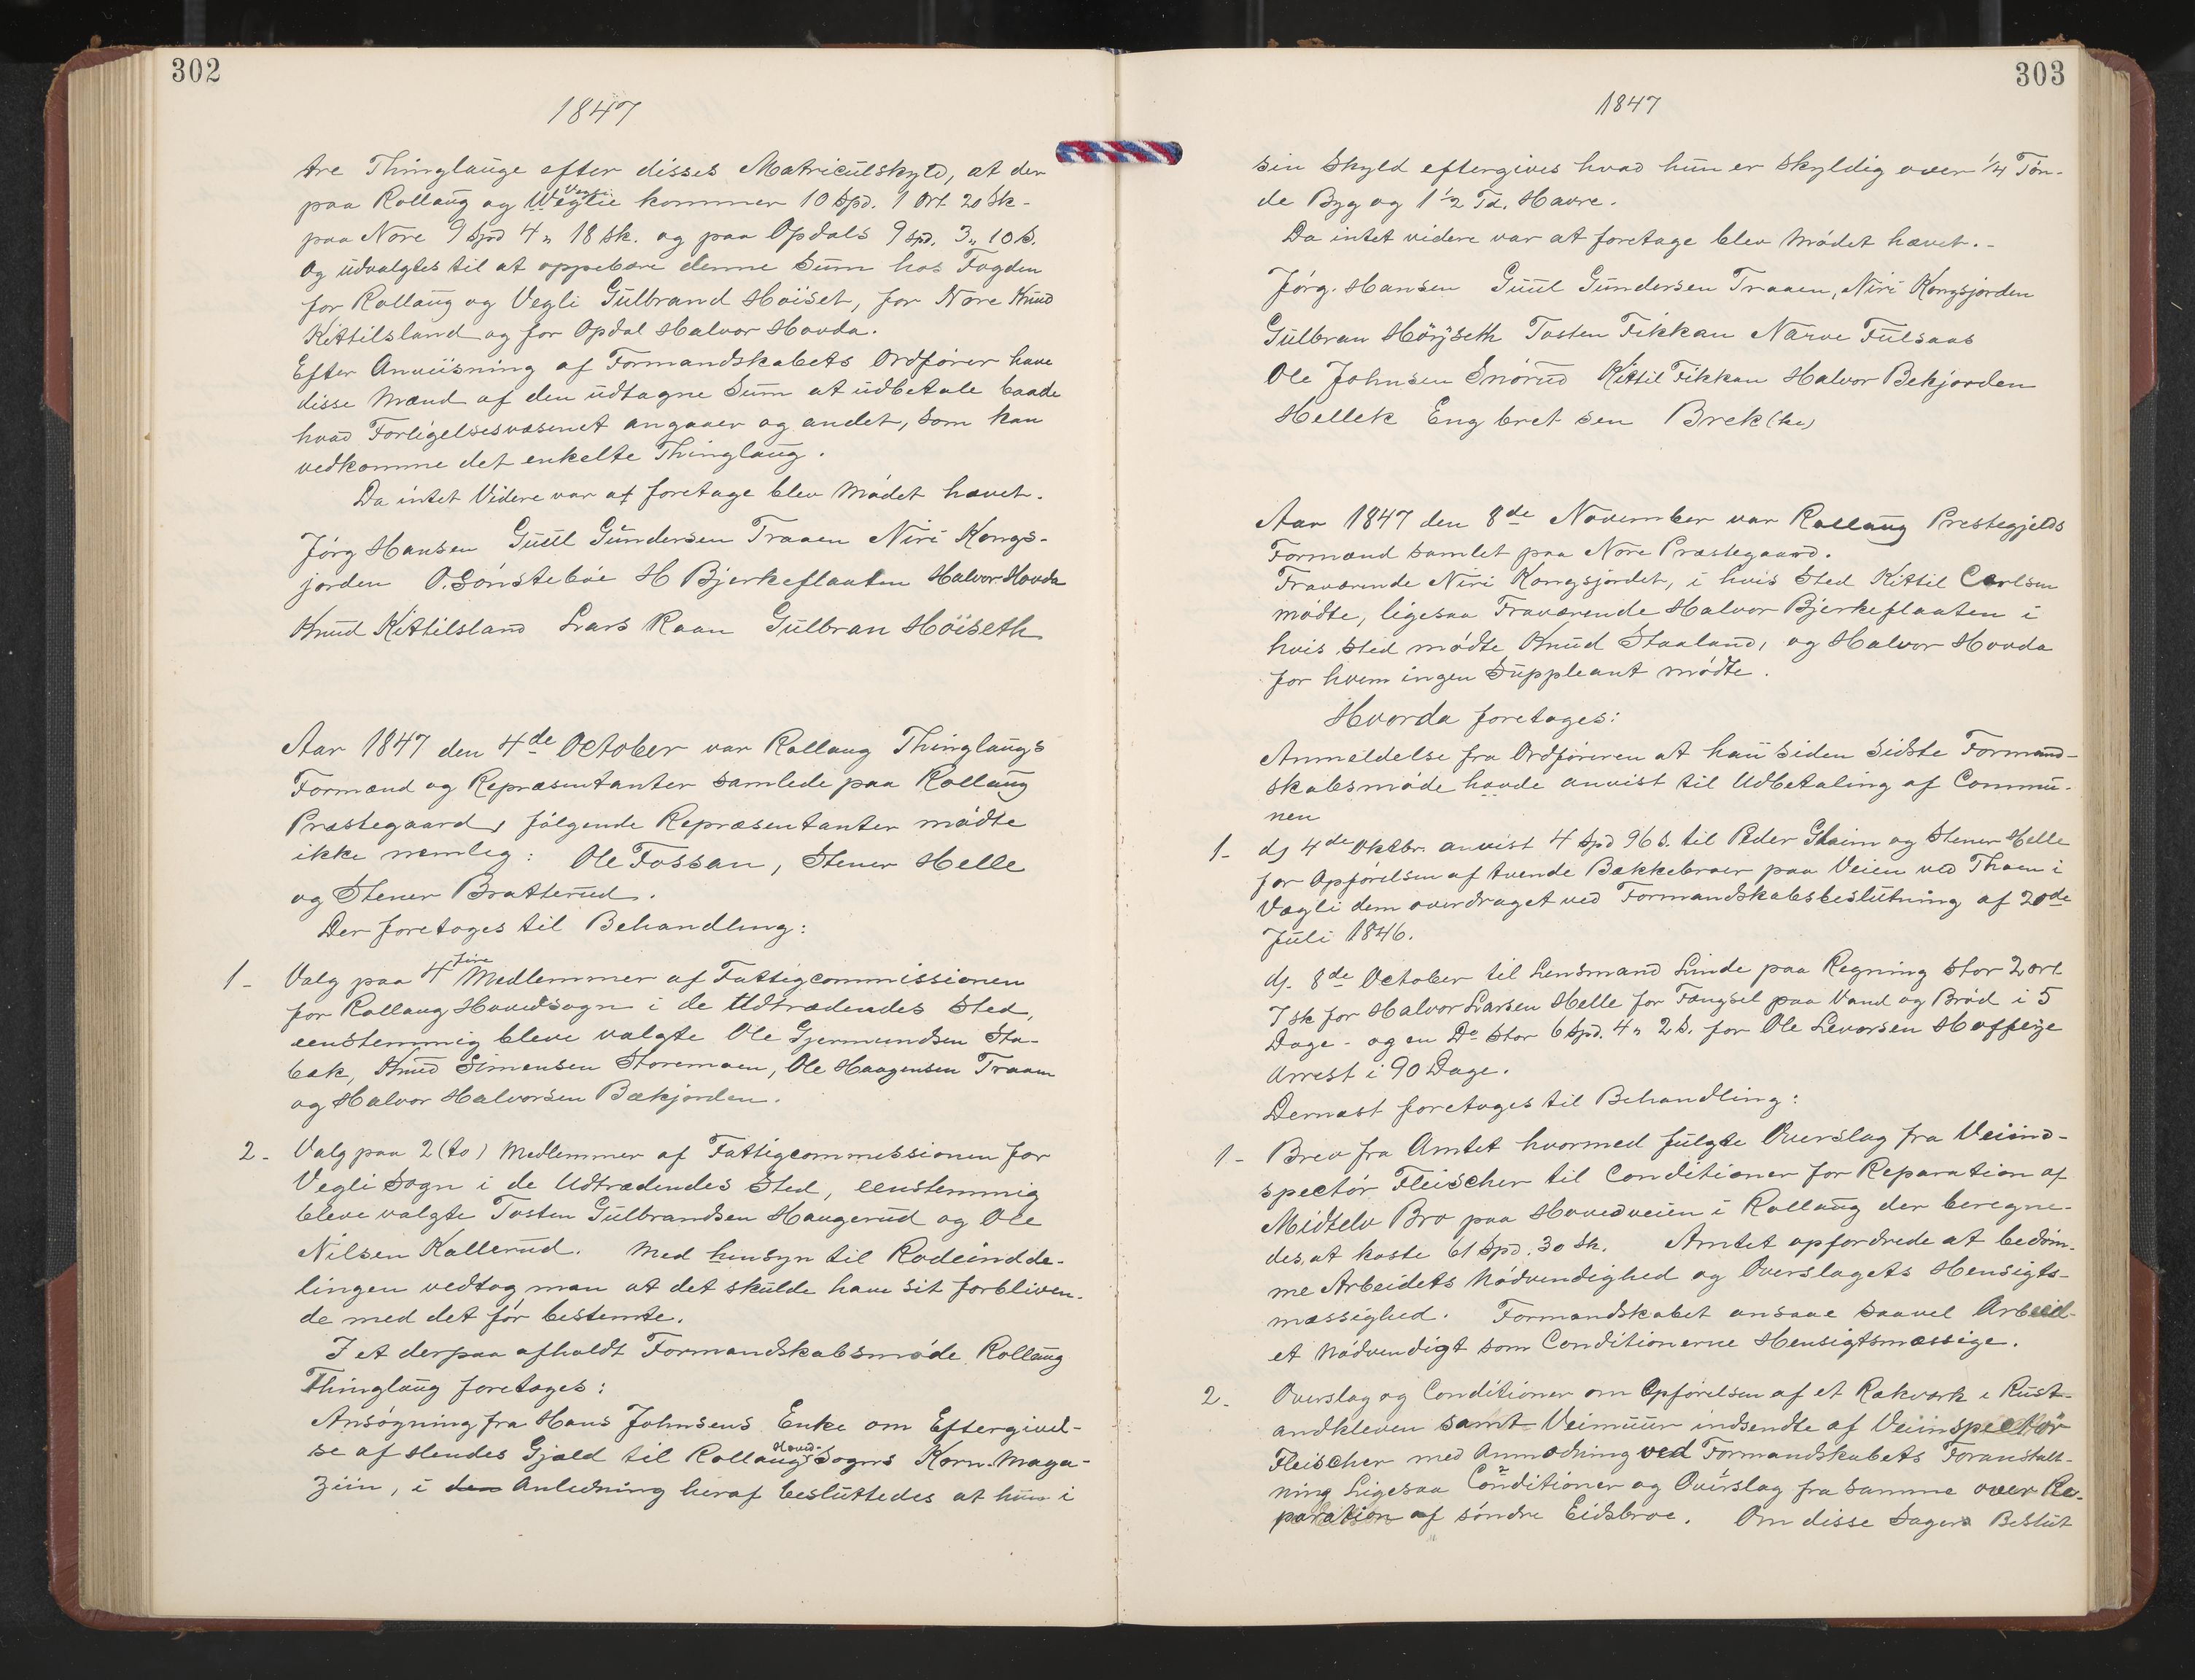 302
1847
tre Thinglauge efter disses Matriculskyld, at der
Vegli
paa Rollaug og Weglie kommer 10 Spd. 1 Ort 20 Sk-
paa Nore 9 Spd 4 „ 18 sk. og paa Opdals 9 Spd. 3 „ 10 s.
Og udvalgtes til at oppebære denne Sum hos Fogden
for Rollaug og Vegli Gulbrand Höiset, for Nore Knud
Kittilsland og for Opdal Halvor Hovda.
Efter Anviisning af Formandskabets Ordförer have
disse Mænd af den udtagne Sum at udbetale baade
hvad Forligelsesvæsenet angaaer og andet, som kan
vedkomme det enkelte Thinglaug.
Da intet Videre var at foretage blev Mödet hævet.
Jörg Hansen Guul Gundersen Traaen Niri Kongs-
jorden O. Sönsteböe H Bjerkeflaaten Halvor Hovda
Knud Kittilsland Lars Raan Gulbran Höiseth
Aar 1847 den 4de October var Rollaug Thinglaugs
Formænd og Repræsentanter samlede paa Rollaug
Præstegaard, fölgende Repræsentanter mödte
ikke nemlig: Ole Fossan, Stener Helle
og Stener Bratterud.
Der foretoges til Behandling:
fire
1- Valg paa 4 Medlemmer af Fattigcommissionen
for Rollaug Hovedsogn i de Udtrædendes Sted,
eenstemmig bleve valgte Ole Gjermundsen Sta-
bæk, Knud Simensen Storemoen, Ole Haagensen Traaen
og Halvor Halvorsen Bækjorden.
2- Valg paa 2 (to) Medlemmer af Fattigcommessionen for
Vegli Sogn i de Udtrædendes Sted, eenstemmig
bleve valgte Tosten Gulbrandsen Haugerud og Ole
Nilsen Kallerud. Med hensyn til Rodeindde-
lingen vedtog man at det skulde have sit forbliven-
de med det för bestemte.
I et derpaa afholdt Formandskabsmöde Rollaug
Thinglaug foretoges:
Ansögning fra Hans Johnsens Enke om Eftergivel-
Hoved-
se af Hendes Gjæld til Rollaugs Sogns Korn-Maga-
ziin, i den Anledning heraf besluttedes at hun i
303
1847
sin Skyld eftergives hvad hun er Skyldig over 1/4 Tön-
de Byg og 1 1/2 Td. Havre.
Da intet videre var at foretage blev Mödet hævet.-
Jörg. Hansen Guul Gundersen Traaen, Niri Kongsjorden
Gulbran Höijseth Tosten Fikkan Narve Fulsaas
Ole Johnsen Snörud Kittil Fikkan Halvor Bekjorden
Hellek Engbretsen Brek(ke)
Aar 1847 den 8de November var Rollaug Prestegjelds
Formænd samlet paa Nore Præstegaard.
Fraværende Niri Kongsjordet, i hvis Sted Kittil Carlsen
mödte, ligesaa Fraværende Halvor Bjerkeflaaten i
hvis Sted mödte Knud Staaland, og Halvor Hovda
for hvem ingen Suppleant mödte.
Hvorda foretoges:
Anmeldelse fra Ordföreren at han siden Sidste Formand-
skabsmöde havde anvist til Udbetaling af Commu-
nen
1- dj 4de Oktbr. anvist 4 Spd 96 s. til Peder Glaim og Stener Helle
for Opförelsen af tvende Bækkebroer paa Veien ved Thoen i
Vægli dem overdraget ved Formandskabsbeslutning af 20de
Juli 1846.
dj. 8de October til Lensmand Linde paa Regning stor 2 ort
7 sk for Halvor Larsen Helle for Fængsel paa Vand og Bröd i 5
Dage - og en Do stor 6 Spd. 4 „ 2 s. for Ole Levorsen Hoffeije
Arrest i 90 Dage.
Dernæst foretoges til Behandling:
1- Brev fra Amtet hvormed fulgte Overslag fra Veiind-
spectör Fleischer til Conditioner for Reparation af
Midtelv Bro paa Hovedveien i Rollaug der beregne-
des, at koste 61 Spd. 30 Sk. Amtet opfordrede at bedöm-
me Arbeidets Nödvendighed og Overslagets Hensigts-
mæssighed. Formandskabet ansaae saavel Arbeid-
et Nödvendigt som Conditionerne Hensigtsmæssige.
2- Overslag og Conditioner om Opförelsen af et Rækværk i Rust-
andkleven samt Veimuur indsendte af Veiinspectör
Fleischer med Anmodning ved Formandskabets Foranstalt-
ning Ligesaa Conditioner og Overslag fra samme over Re-
paration af söndre Eidsbroe. Om disse Sagers Beslut